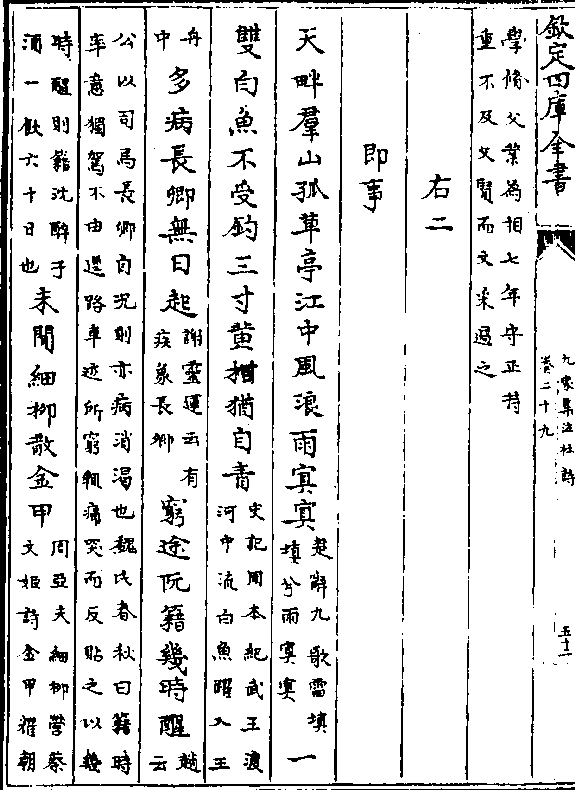 欽定四庫全書
九家集注杜詩
卷二十九
五十一
學脩父業為相七年守正持
重不及父賢而文采過之
右二
即事
天畔羣山孤草亭江中風浪雨㝠㝠楚辭九歌雷填填兮雨㝠㝠一
雙白魚不受釣三寸黄柑猶自青史記周本紀武王渡河中流白魚躍入王
舟中多病長卿無日起謝靈運云有疾象長卿窮途阮籍幾時醒趙云
公以司馬長卿自況則亦病消渴也魏氏春秋曰籍時
率意獨駕不由逕路車迹所窮輒痛哭而反貼之以幾
時醒則籍沈醉于酒一飲六十日也未聞細柳散金甲周亞夫細柳營蔡文姬詩金甲耀朝